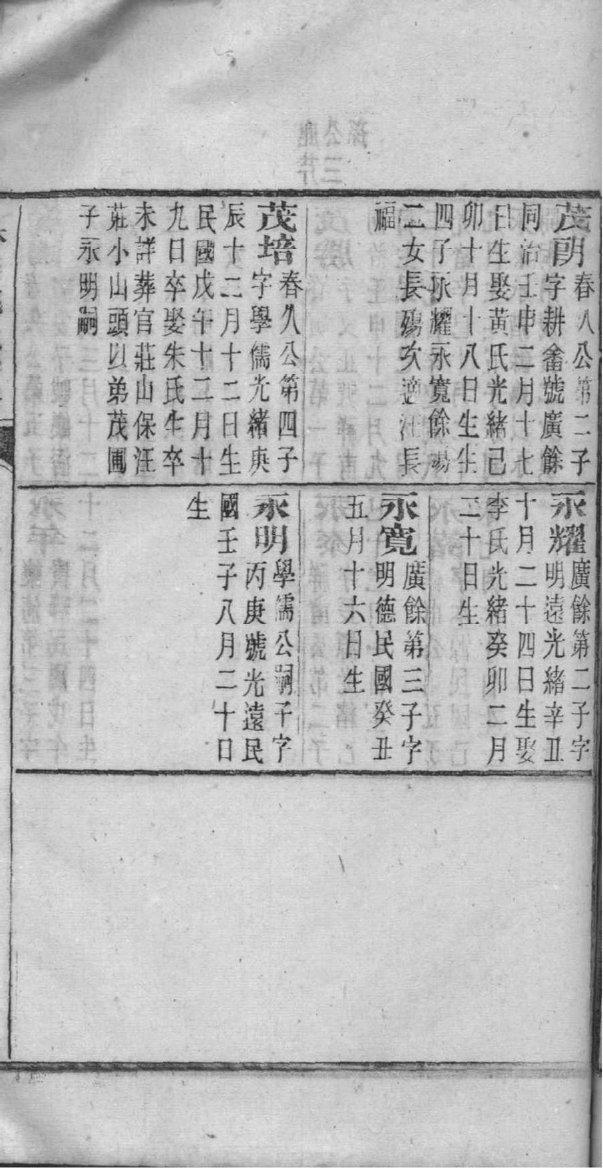 茂朗春八公第二子
字耕畬號廣餘
同治壬申二月十七
日生娶黃氏光緒己
卯十月十八日生生
四子永耀永寬餘殤
二女長殤次適汪長
福
茂培春八公第四子
字學儒光緒庚
辰十二月十二日生
民國戊午十二月十
九日卒娶朱氏生卒
未詳葬官莊山保汪
莊小山頭以弟茂圃
子永明嗣
永耀廣餘第二子字
明遠光緒辛丑
十月二十四日生娶
李氏光緒癸卯二月
二十日生
永寬廣餘第三子字
明德民國癸丑
五月十六日生
永明學儒公嗣子字
丙庚號光遠民
國壬子八月二十日
生